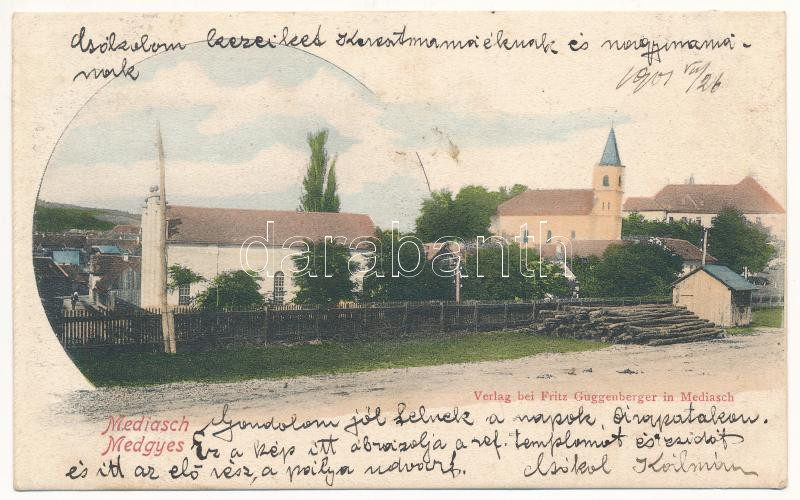 Csókolom kezeiket Keresztmamáéknak és nagymamá-
nak
1901 VII/26
darabanth
Verlag bei Fritz Guggenberger in Mediasch
Mediasch
Medgyes
Gondolom jól telnek a napok,
Ez a kép itt ábrázolja a ref. templomot és zsidót
és itt az elő rész, a pálya udvart.
Csókol Kálmán